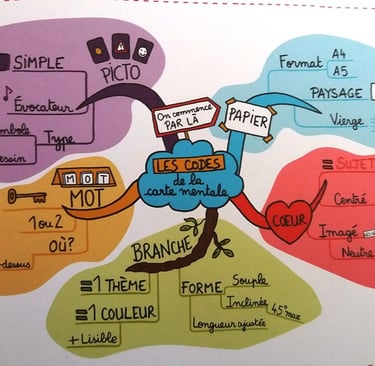 LES CODES
de la
carte mentale
On commence
PAR LÀ
PAPIER
Format
A4
A5
PAYSAGE
Vierge
COEUR
= SUJET
Centré
Imagé
Neutre
BRANCHE
= 1 THÈME
= 1 COULEUR
+ Lisible
FORME
Souple
Inclinée
45° max
Longueur ajustée
MOT
MOT
1 ou 2
OÙ?
dessus
PICTO
SIMPLE
Évocateur
Type